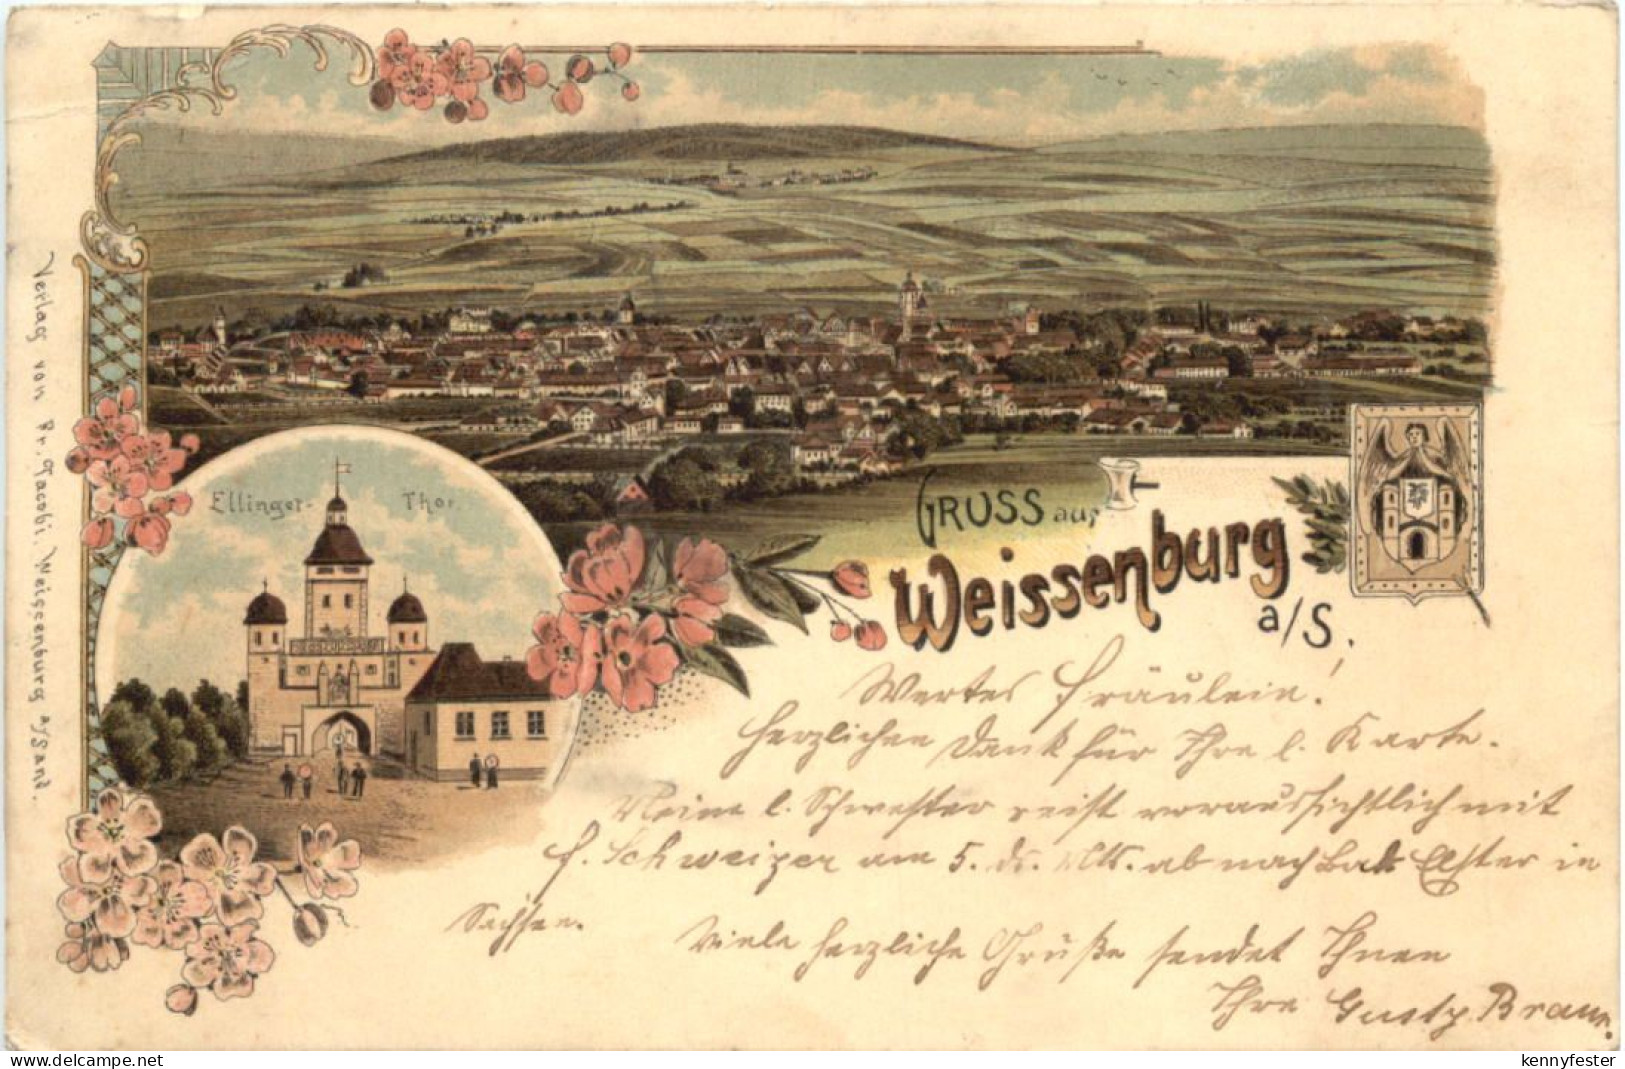 Ellinger- Thor.
GRUSS aus
Weissenburg
a/S.
Verlag von Br. Jacobi. Weissenburg a/Sand.
Wertes Fräulein!
Herzlichen Dank für Ihre l. Karte.
Meine l. Schwester reist voraussichtlich mit
f. Schweizer am 5. ds. Mts. ab nach Bad Elster in
Sachsen.
Viele herzliche Grüße sendet Ihnen
Ihre Braun.
www.delcampe.net
kennyfester